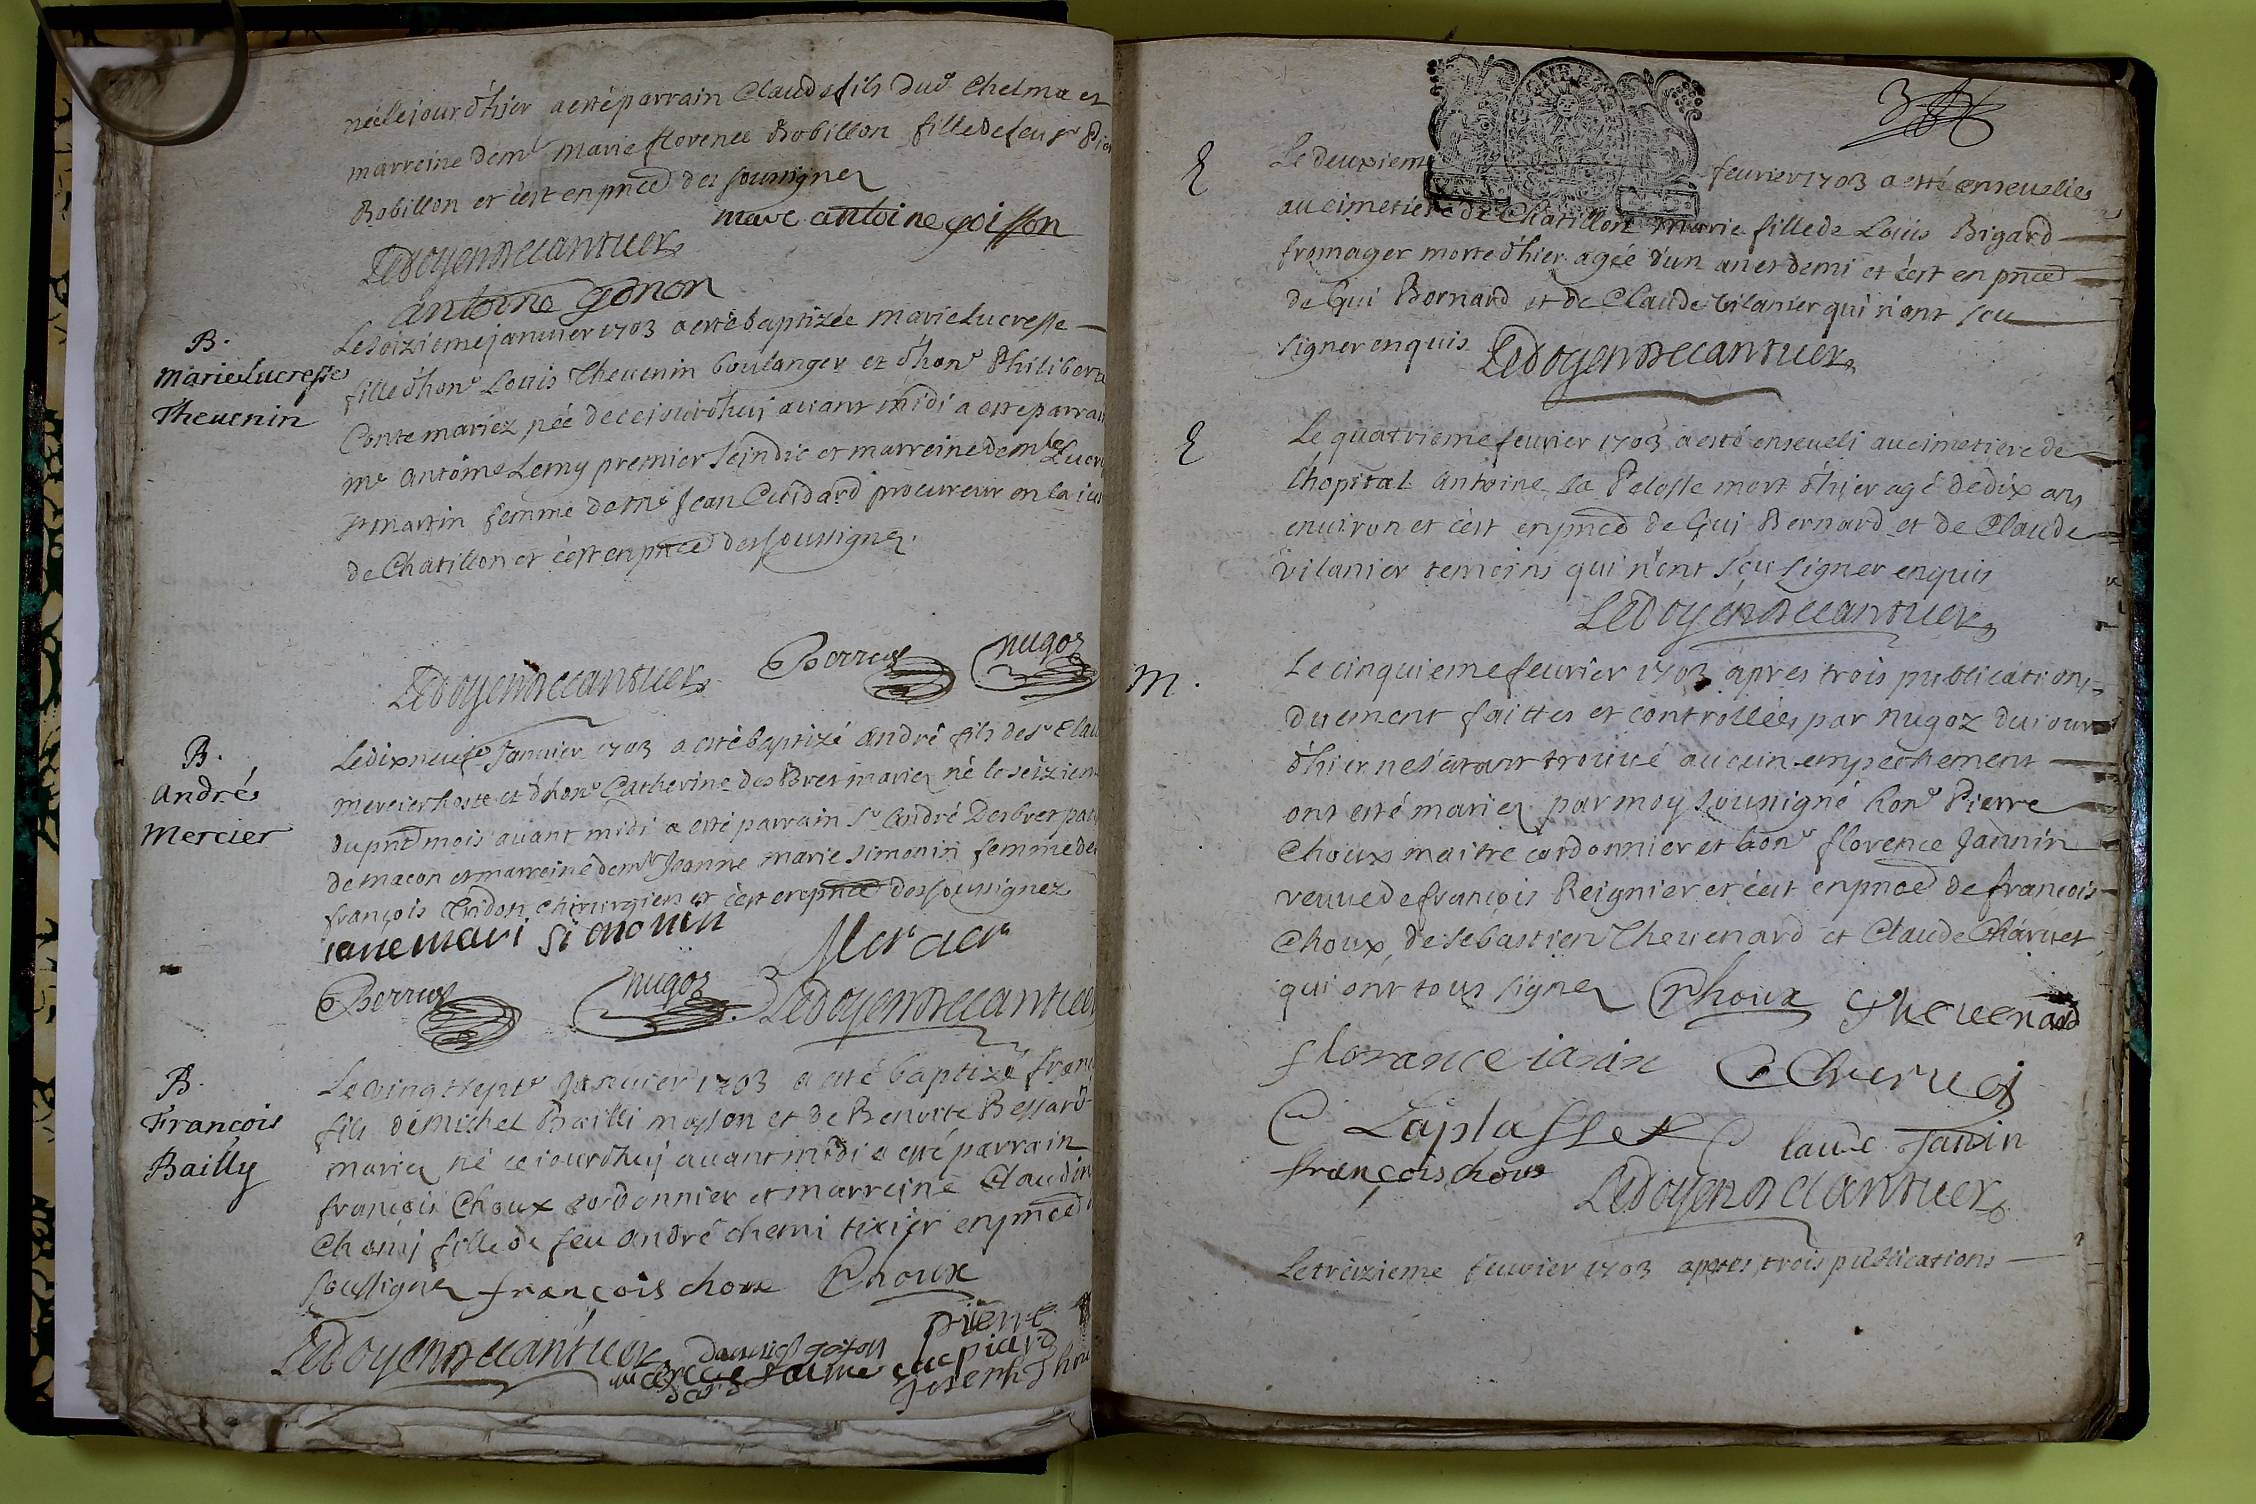 née le jour d'hier a esté parrain Claude fils du sr Chelma et
marreine demle Marie florence Robillon fille de feu sr
Robillon et c'est en pnce des soussignez
marc antoine goisson
Ledoyen Decantuer
antoine gonon
B.
Marie Lucresse
Theuenin
Le seizieme januier 1703 a esté baptizée Marie Lucresse
fille d'hone Louis Theuenin boulanger et d'hone Philiberte
Conte mariez née de ce jourd'huy auant midi a esté parrain
me Antoine Lemy premier scindic et marreine demle
st martin femme de me Jean Cuidard procureur en la
de Chatillon et c'est en pnce des soussignez.
Ledoyen Decantuer Perruq nugoz
B.
André
Mercier
Le dixneufe Januier 1703 a esté baptizé André fils de sr
mercier hoste et d'hone Catherine des Bres mariez né le seizieme
du pnt mois auant midi a esté parrain sr André Desbres
de macon et marreine demle Jeanne marie simonin femme de
françois Tridon chirurgien et c'est en pnce des soussignez
iane mari simonin Mercier
Perruq nugoz Ledoyen Decantuer
B.
François
Bailly
Le vingt septe Januier 1703 a esté baptizé
fils de Michel Bailli masson et de Benoite Bessard
mariez né ce iourd'huy auant midi a esté parrain
françois Choux cordonnier et marreine
fille de feu André tixier en pnce
soussignez françois choux Phoux
Ledoyen Decantuer pierre
3
E
Le deuxieme feurier 1703 a esté enseuelie
au cimetiere de Chatillon Marie fille de Louis Bigard
fromager morte d'hier agée d'un an et demi et c'est en pnce
de Gui Bernard et de Claude Vilanier qui n'ont sceu
signer enquis Ledoyen Decantuer
E
Le quatrieme feurier 1703 a esté enseueli au cimetiere de
l'hopital Antoine La Pelosse mort d'hyer agé de dix ans
enuiron et c'est en pnce de Gui Bernard et de Claude
vilanier temoins qui n'ont sçeu signer enquis
Ledoyen Decantuer
M.
Le cinquieme feurier 1703 apres trois publications
duement faittes et controllées par nugoz du iour
d'hier ne s'etant trouué aucun empechement
ont esté mariez par moy soussigné hone Pierre
Choux maitre cordonnier et hone florence Jannin
veuue de françois Reignier et c'est en pnce de francois
Choux, de sebastien Theuenard et Claude Charuet
qui ont tous signez Phoux Theuenard
florance ianin C Cheruet
C Laplasse Claude Janin
françois choux Ledoyen Decantuer
Le treizieme feurier 1703 apres trois publications